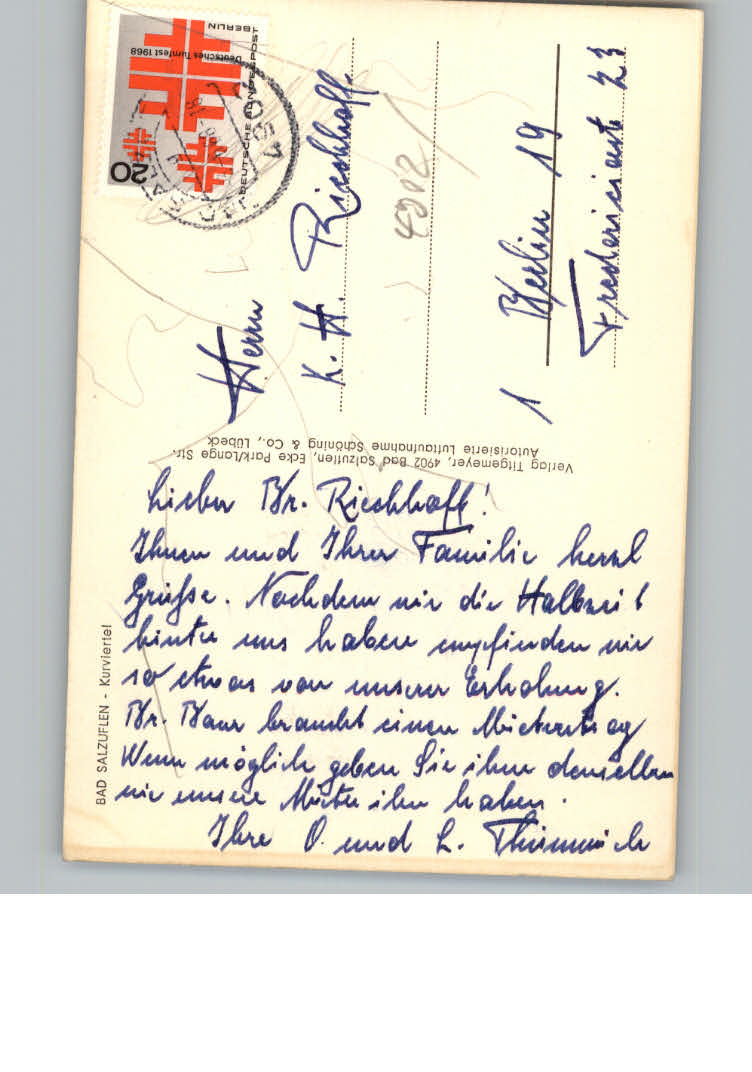 BERLIN
Deutsches Turnfest 1968
DEUTSCHE BUNDESPOST
20
Herrn
K. H. Rieckhoff
4902
1 Berlin 19
Fredericiastr 23
Verlag Titgemeyer, 4902 Bad Salzuflen, Ecke Park/Lange Str.
Autorisierte Luftaufnahme Schöning & Co., Lübeck
BAD SALZUFLEN - Kurviertel
Lieber Br. Rieckhoff!
Ihnen und Ihrer Familie herzl
Grüße. Nachdem wir die Halbzeit
hinter uns haben empfinden wir
so etwas von unserer Erholung.
Br. Baur braucht einen
Wenn möglich geben Sie ihm denselben
wie unsere Mieter ihn haben.
Ihre O. und L.